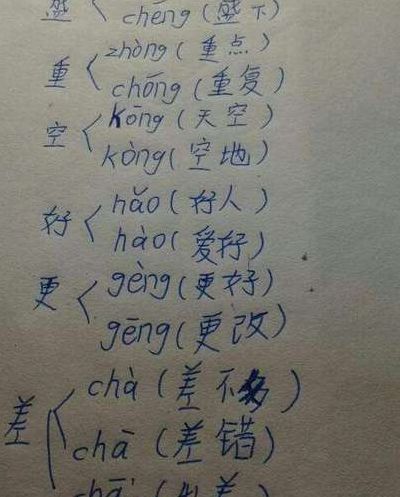 盛 chéng (盛下)
重 zhòng (重点)
chóng (重复)
空 kōng (天空)
kòng (空地)
好 hǎo (好人)
hào (爱好)
更 gèng (更好)
gēng (更改)
差 chà (差不多)
chā (差错)
chāi (出差)